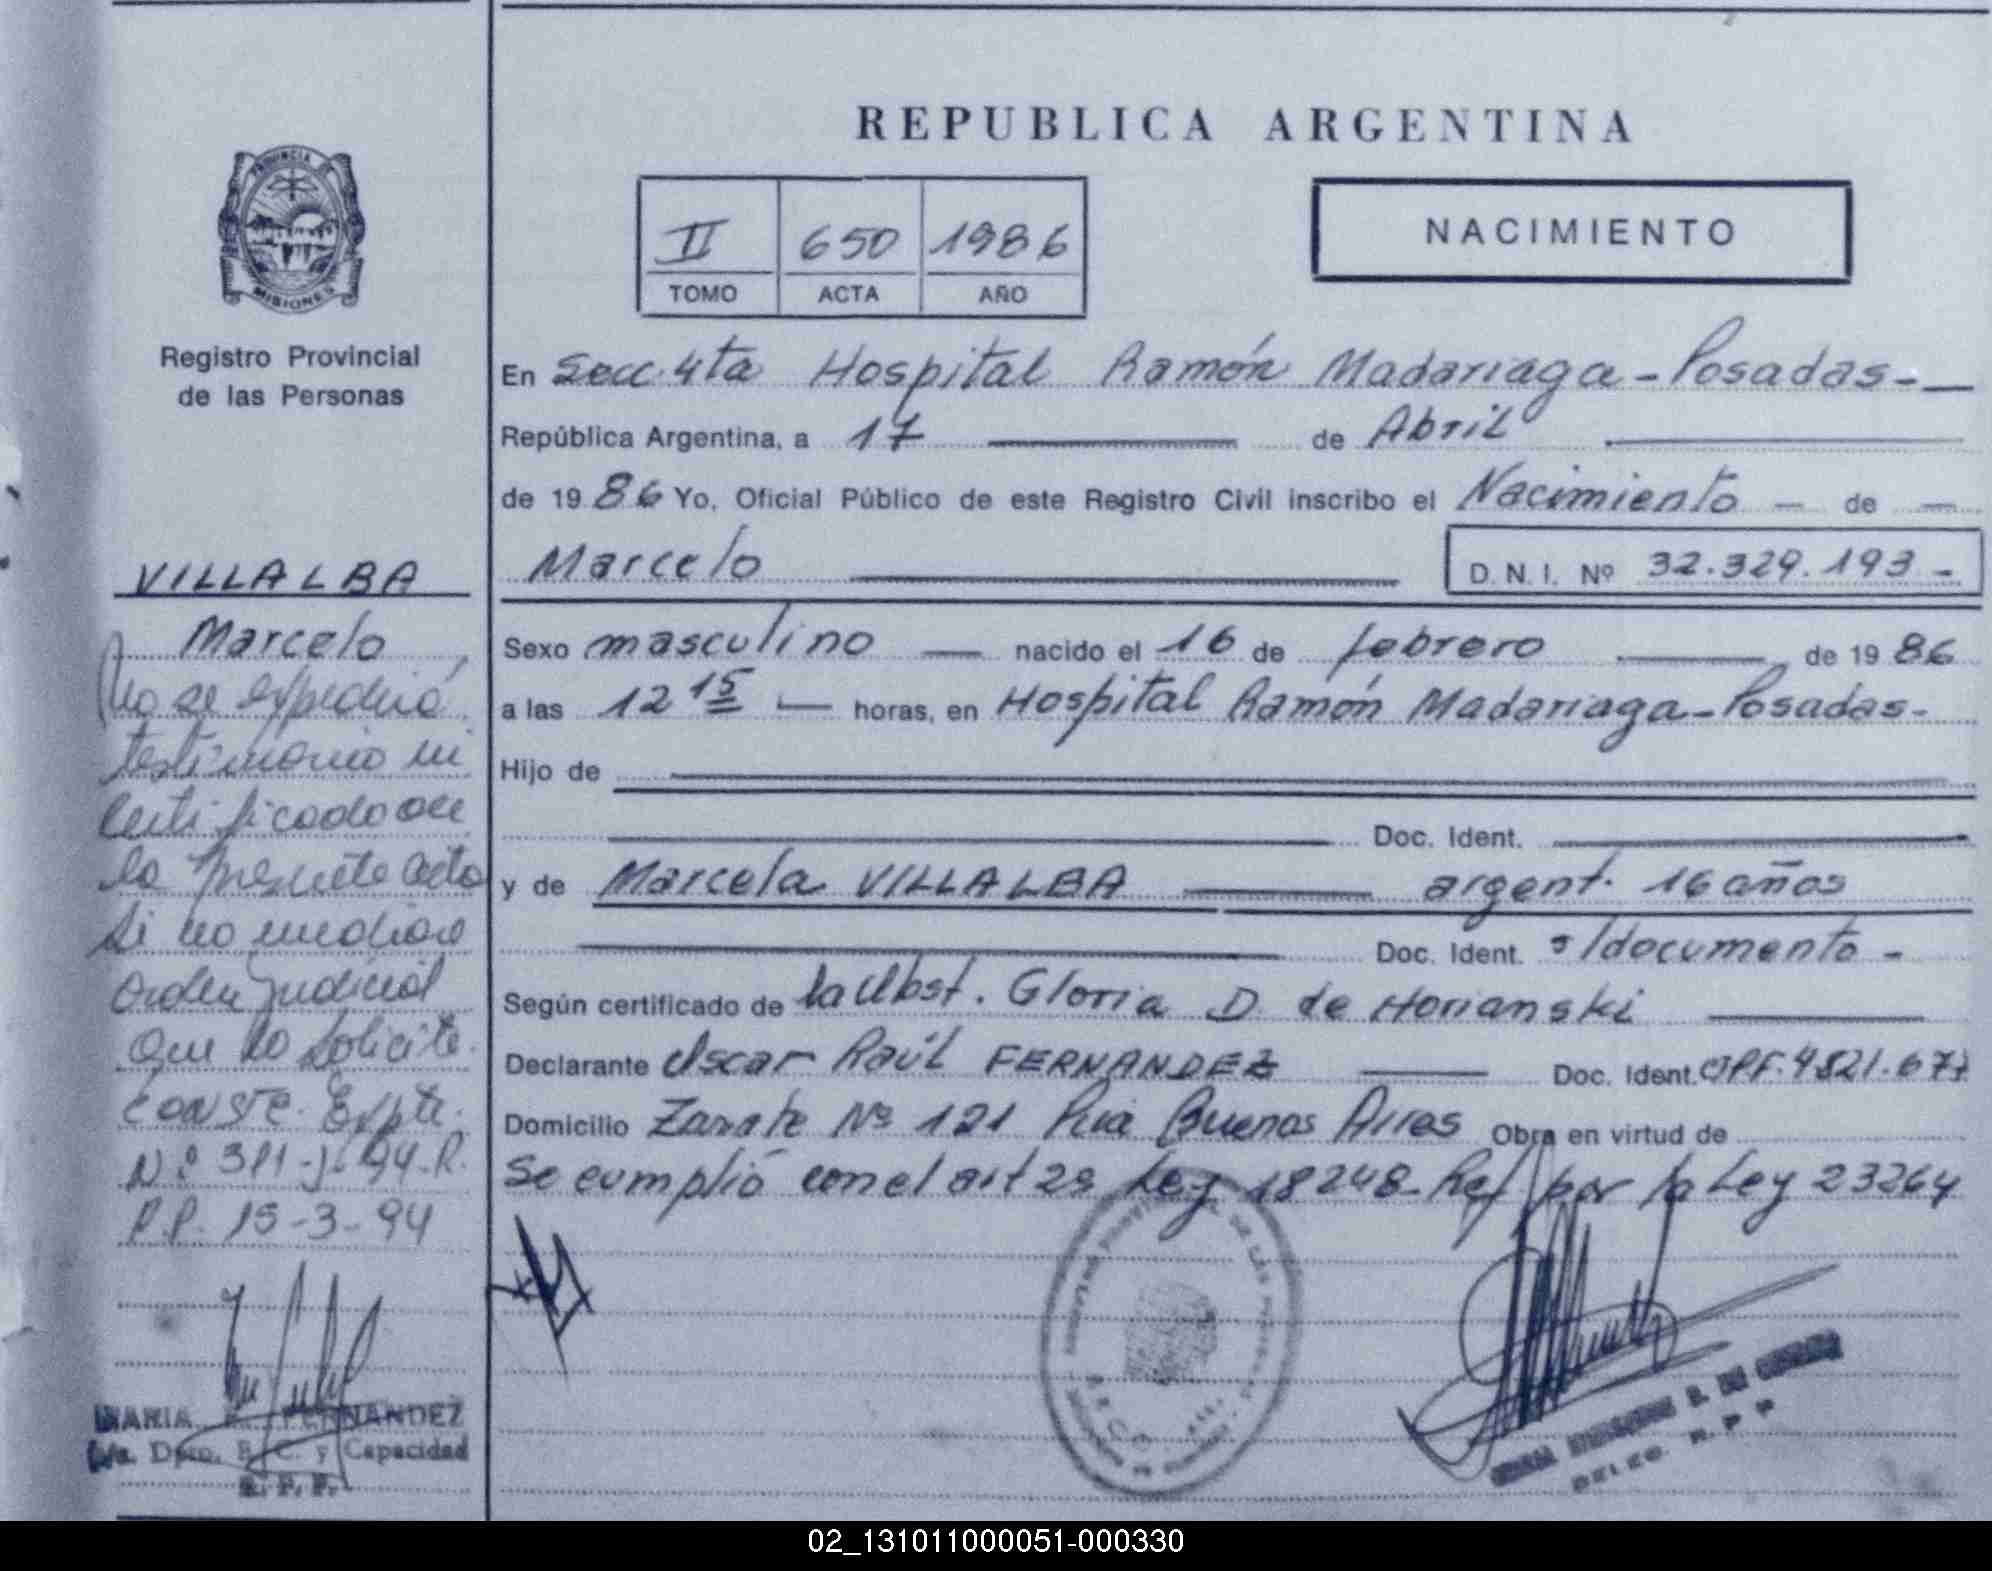 REPUBLICA ARGENTINA
NACIMIENTO
II 650 1986
TOMO ACTA AÑO
PROVINCIA DE
MISIONES
Registro Provincial
de las Personas
VILLALBA
Marcelo
No se expedirá
testimonio ni
certificado de
la presente acta
si no mediare
orden judicial
que lo solicite.
CONSTE. Expte.
Nº 311-J-94-R.
P.P. 15-3-94
MARIA FERNANDEZ
Dpto. E. C. y Capacidad
R. P. P.
En Secc. 4ta Hospital Ramón Madariaga - Posadas -
República Argentina, a 17 de Abril
de 1986 Yo, Oficial Público de este Registro Civil inscribo el Nacimiento de
Marcelo D. N. I. Nº 32.329.193 -
Sexo masculino nacido el 16 de febrero de 1986
a las 12 15 horas, en Hospital Ramón Madariaga - Posadas -
Hijo de
Doc. Ident.
y de Marcela VILLALBA argent. 16 años
Doc. Ident. s/documento -
Según certificado de la Obst. Gloria D. de Horianski
Declarante Oscar Raúl FERNANDEZ Doc. Ident. OPF. 4.821.677
Domicilio Zarate Nº 121 Pcia Buenos Aires Obra en virtud de
Se cumplió con el art 2º Ley 18248 - Ref por la Ley 23264
DELEG. R. P. P.
02_131011000051-000330